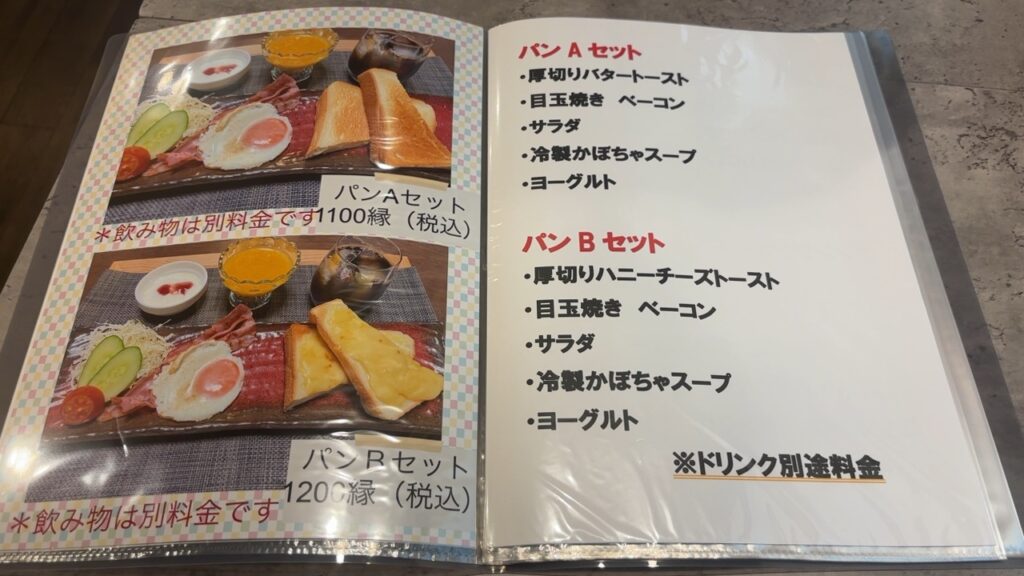 パンAセット
1100縁（税込）
＊飲み物は別料金です
パンBセット
1200縁（税込）
＊飲み物は別料金です
パン A セット
・厚切りバタートースト
・目玉焼き　ベーコン
・サラダ
・冷製かぼちゃスープ
・ヨーグルト
パン B セット
・厚切りハニーチーズトースト
・目玉焼き　ベーコン
・サラダ
・冷製かぼちゃスープ
・ヨーグルト
※ドリンク別途料金